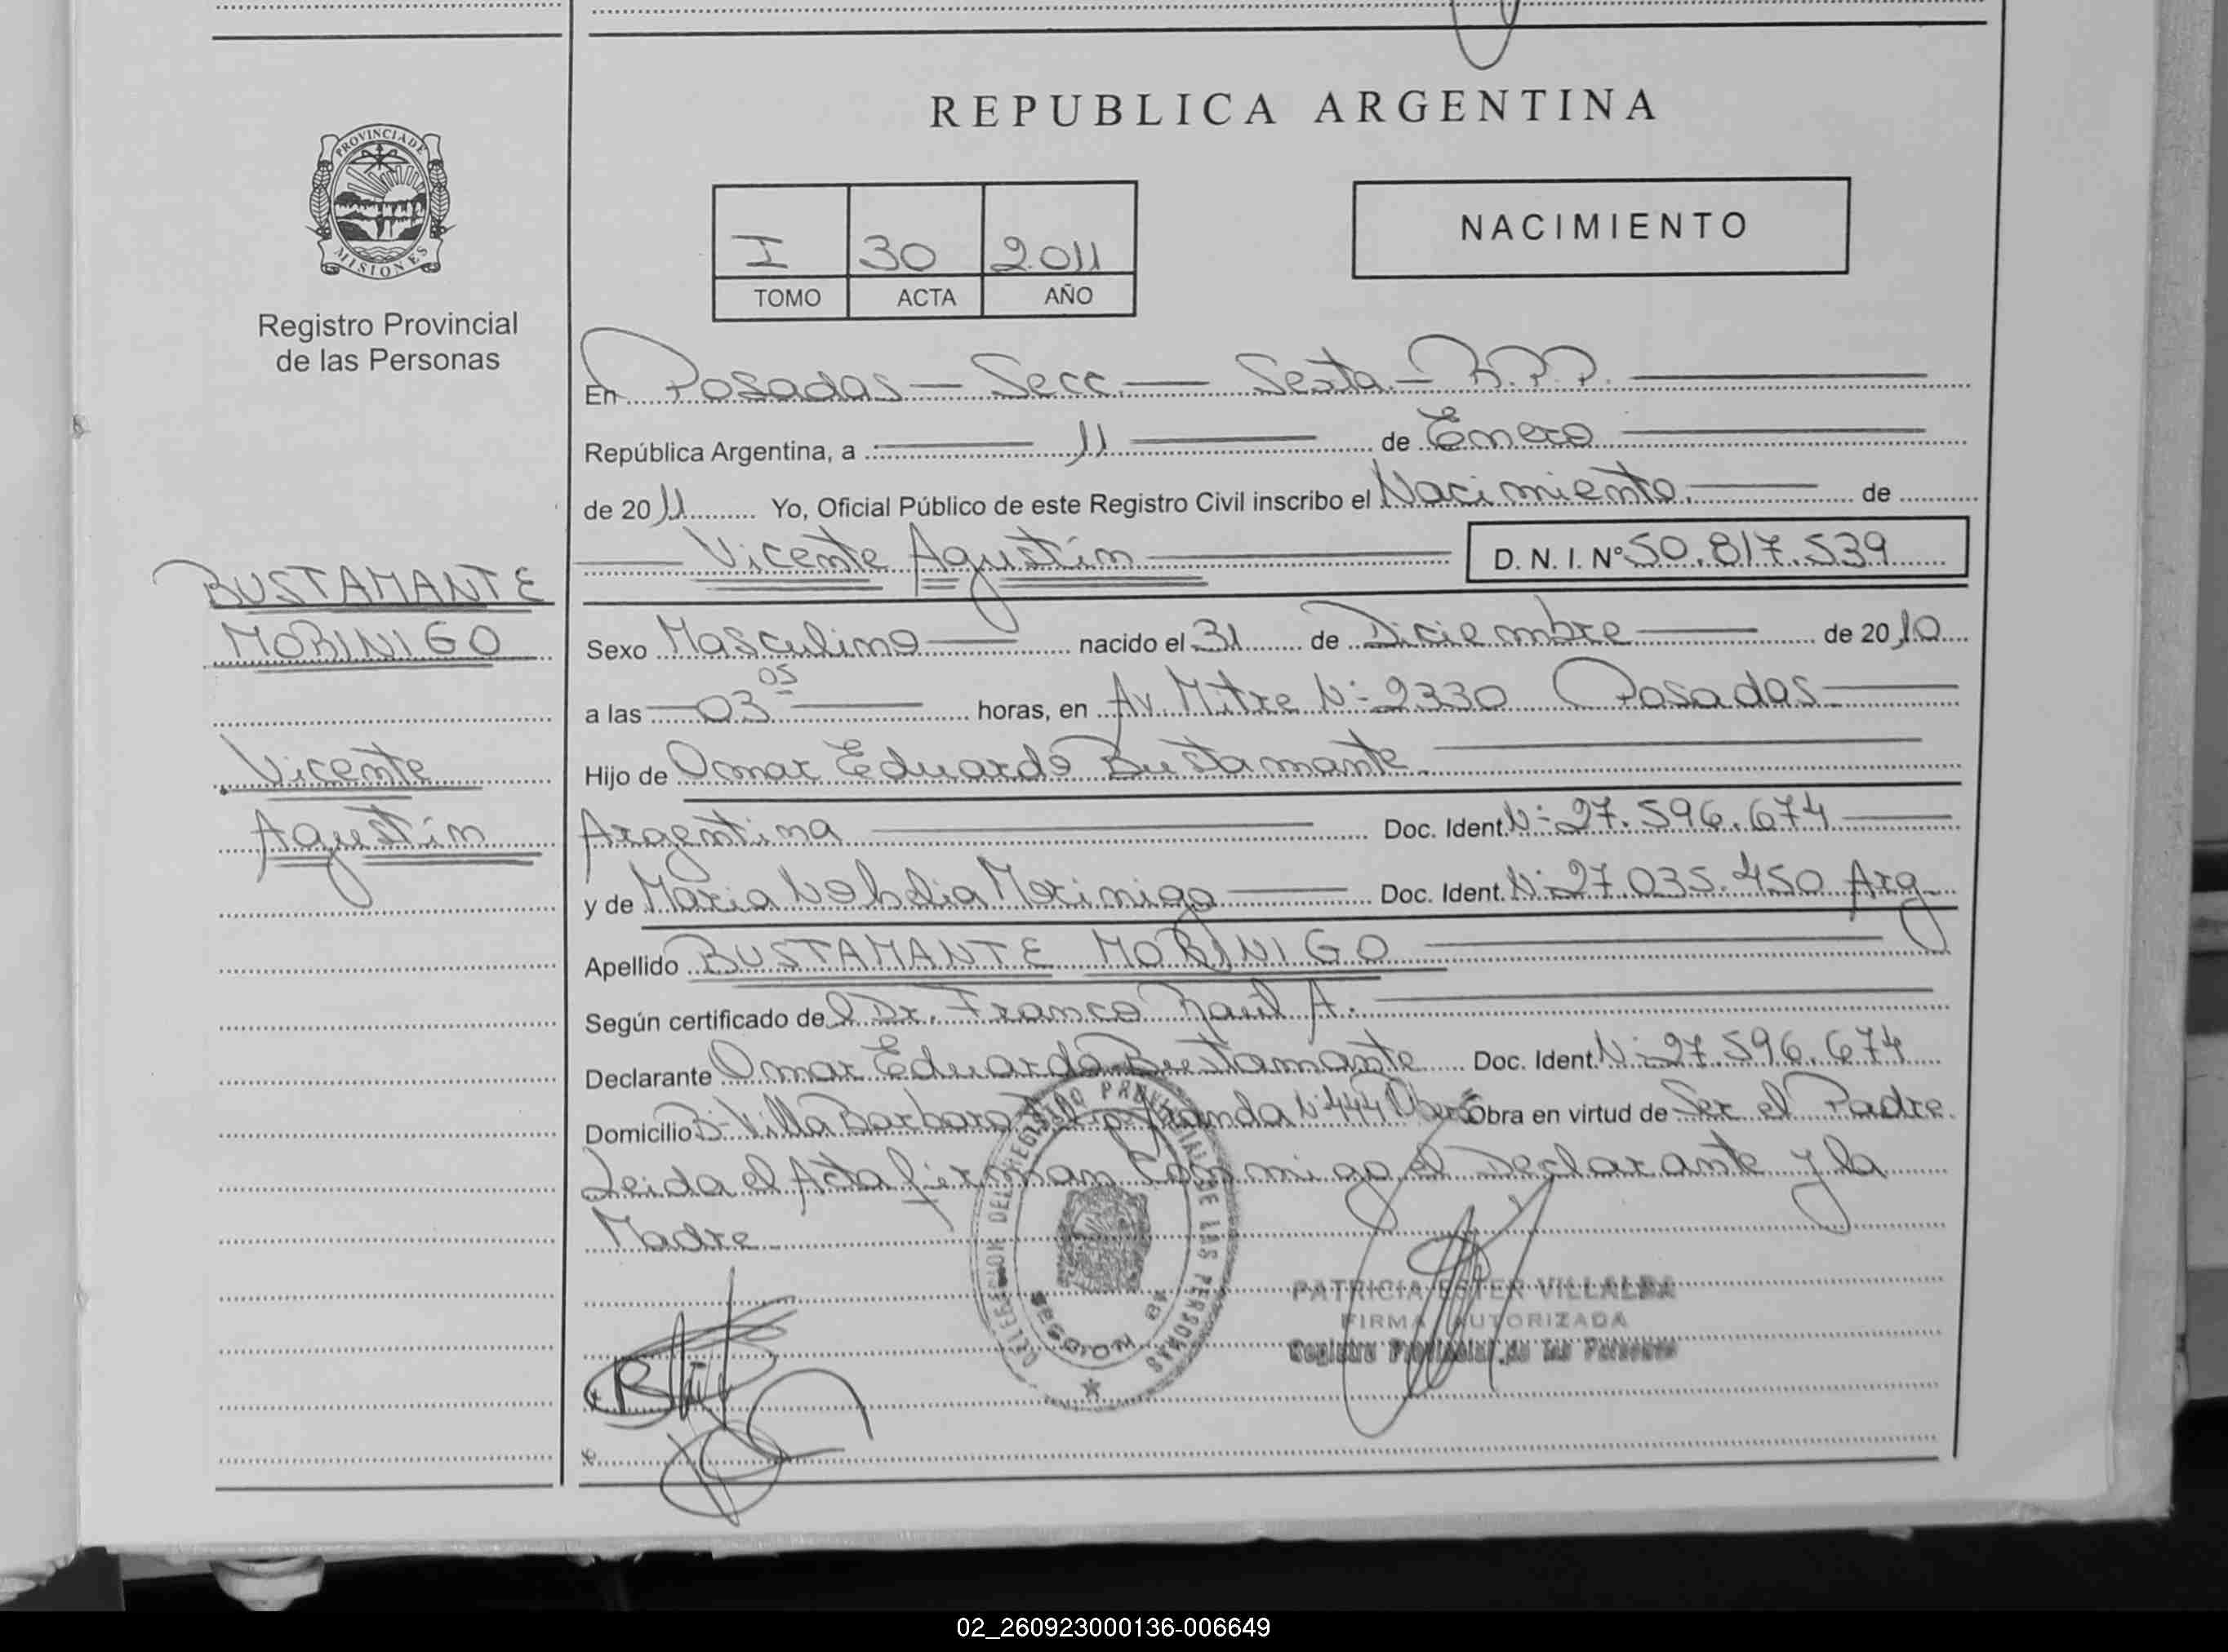 REPUBLICA ARGENTINA
PROVINCIA DE
MISIONES
Registro Provincial
de las Personas
NACIMIENTO
I 30 2011
TOMO ACTA AÑO
En Posadas - Secc. - Sexta - R.P.P.
República Argentina, a 11 de Enero
de 2011 Yo, Oficial Público de este Registro Civil inscribo el Nacimiento de
Vicente Agustín D. N. I. Nº 50.817.539
BUSTAMANTE
MORINIGO
Vicente
Agustín
Sexo Masculino nacido el 31 de Diciembre de 2010
a las 03 05 horas, en Av. Mitre Nº 2330 Posadas
Hijo de Omar Eduardo Bustamante
Argentina Doc. Ident. Nº 27.596.674
y de Maria Morinigo Doc. Ident. Nº 27.035.450 Arg.
Apellido BUSTAMANTE MORINIGO
Según certificado del Dr. Franco Raúl A.
Declarante Omar Eduardo Bustamante Doc. Ident. Nº 27.596.674
Domicilio Bº Villa Barbara Nº 444 Obra en virtud de Ser el Padre.
Leida el Acta firman Conmigo el Declarante y la
Madre
DELEGACION DEL REGISTRO PROVINCIAL DE LAS PERSONAS
PATRICIA ESTER VILLALBA
FIRMA AUTORIZADA
Registro Provincial de las Personas
02_260923000136-006649